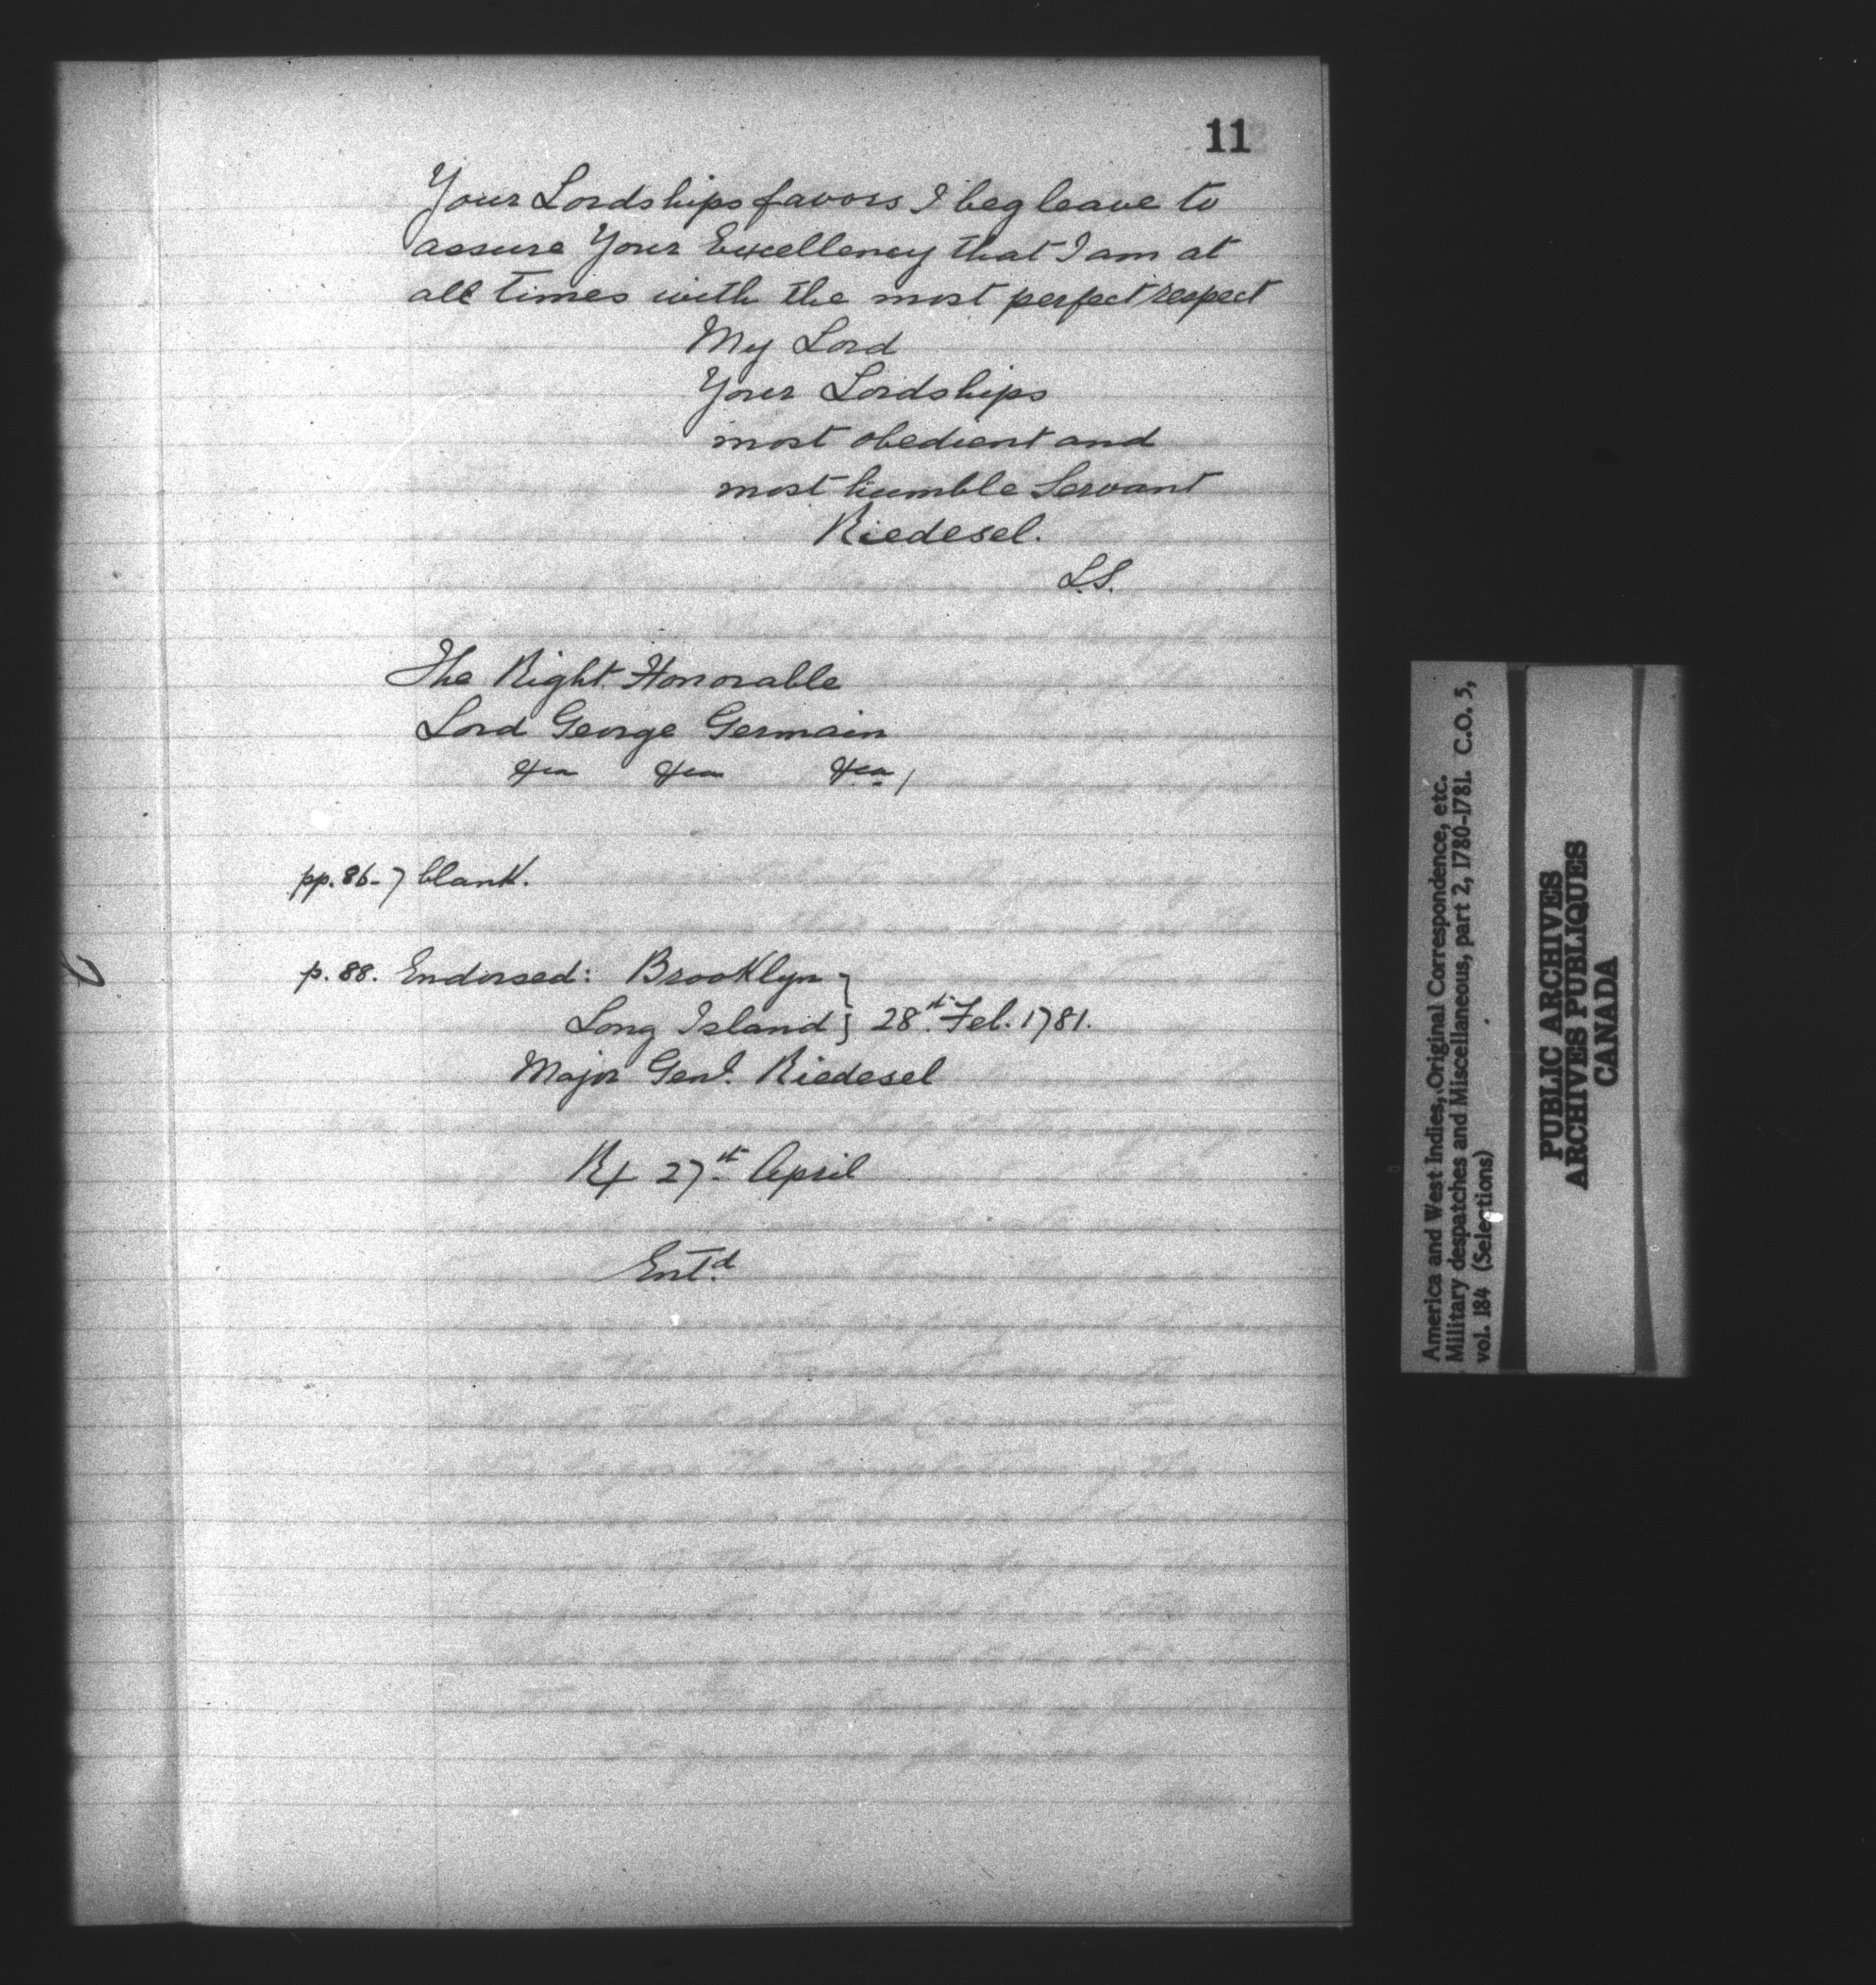 11
Your Lordships favors I beg leave to
assure Your Excellency that I am at
all times with the most perfect respect
My Lord
Your Lordships
most obedient and
most humble Servant
Riedesel.
L.S.
The Right Honorable
Lord George Germain
&ca &ca &ca /
pp. 86-7 blank.
p. 88. Endorsed: Brooklyn }
Long Island } 28th Feb. 1781.
Major Genl. Riedesel
Rx 27th April
Entd
America and West Indies, Original Correspondence, etc.
Military despatches and Miscellaneous, part 2, 1780-1781. C.O. 5,
vol. 184 (Selections)
PUBLIC ARCHIVES
ARCHIVES PUBLIQUES
CANADA